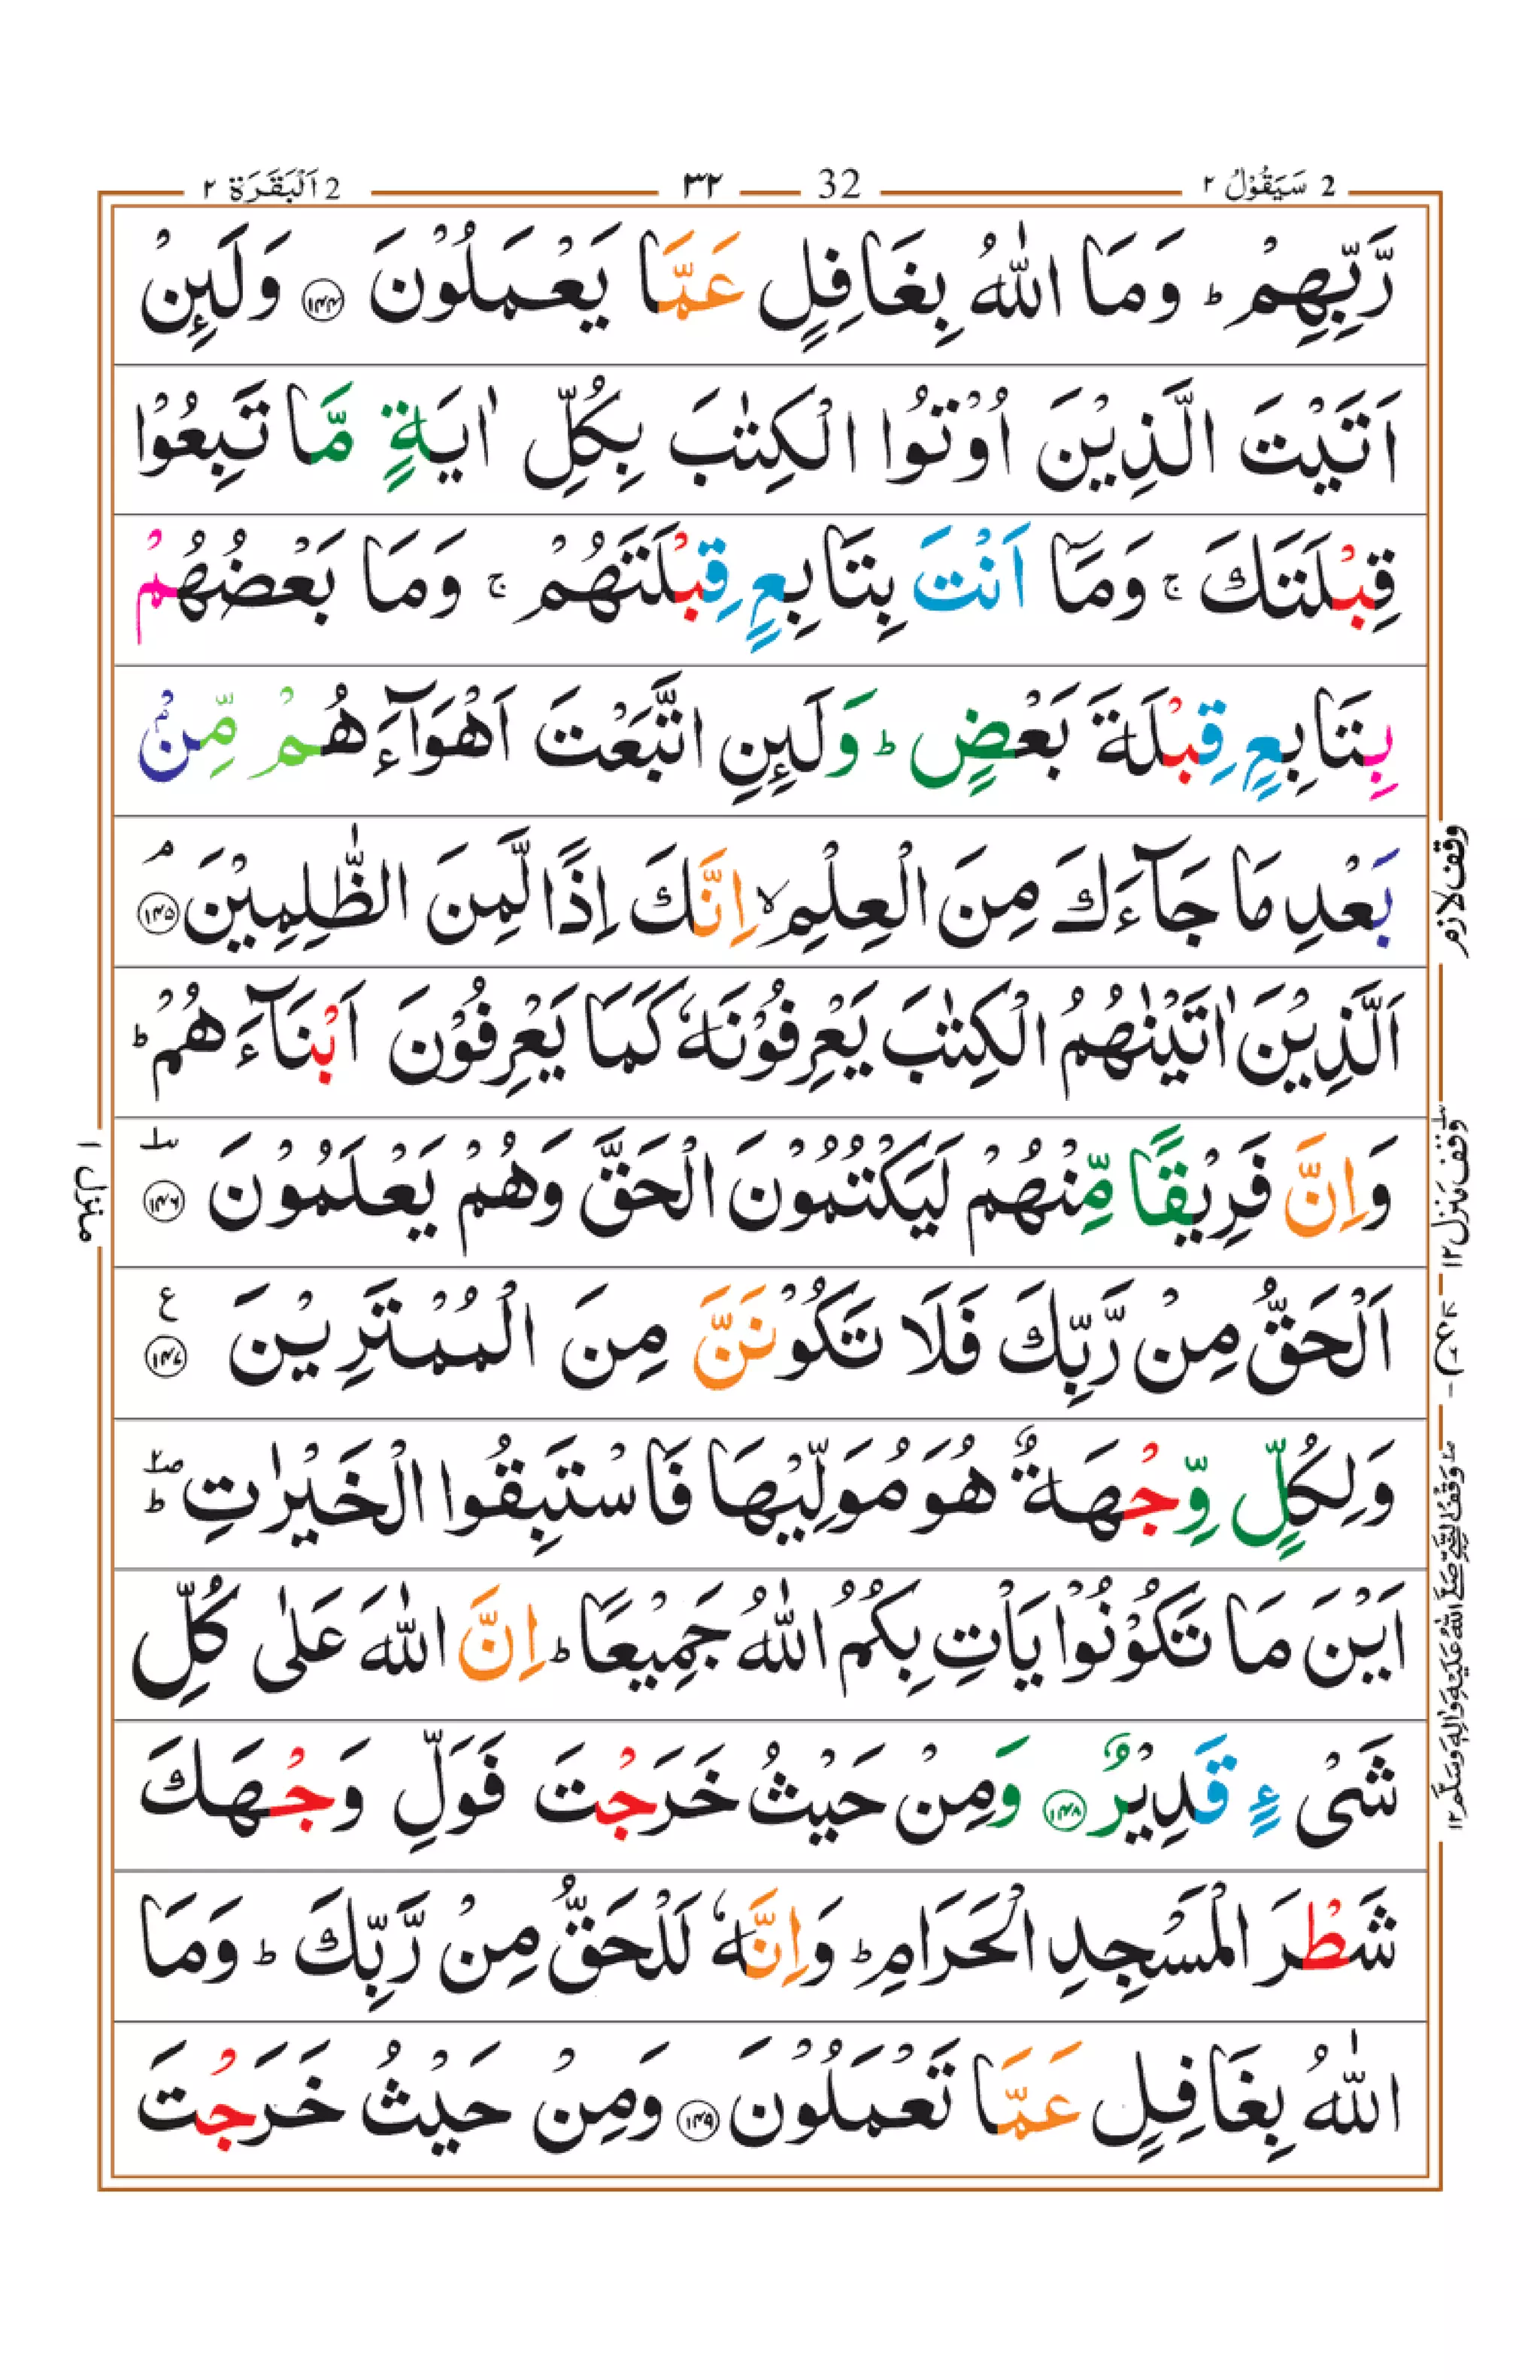 2 سَيَقُوْلُ ٢
32 ٣٢
2 اَلْبَقَرَة ٢
رَّبِّهِمْ ؕ وَمَا اللّٰهُ بِغَافِلٍ عَمَّا يَعْمَلُوْنَ ﴿۱۴۴﴾ وَلَئِنْ
اَتَيْتَ الَّذِيْنَ اُوْتُوا الْكِتٰبَ بِكُلِّ اٰيَةٍ مَّا تَبِعُوْا
قِبْلَتَكَ ۚ وَمَاۤ اَنْتَ بِتَابِعٍ قِبْلَتَهُمْ ۚ وَمَا بَعْضُهُمْ
بِتَابِعٍ قِبْلَةَ بَعْضٍ ؕ وَلَئِنِ اتَّبَعْتَ اَهْوَآءَهُمْ مِّنْۢ
بَعْدِ مَا جَآءَكَ مِنَ الْعِلْمِ ۙ اِنَّكَ اِذًا لَّمِنَ الظّٰلِمِيْنَ ۘ ﴿۱۴۵﴾
اَلَّذِيْنَ اٰتَيْنٰهُمُ الْكِتٰبَ يَعْرِفُوْنَهٗ كَمَا يَعْرِفُوْنَ اَبْنَآءَهُمْ ؕ
وَاِنَّ فَرِيْقًا مِّنْهُمْ لَيَكْتُمُوْنَ الْحَقَّ وَهُمْ يَعْلَمُوْنَ ﴿۱۴۶﴾
اَلْحَقُّ مِنْ رَّبِّكَ فَلَا تَكُوْنَنَّ مِنَ الْمُمْتَرِيْنَ ﴿۱۴۷﴾ ع
وَلِكُلٍّ وِّجْهَةٌ هُوَ مُوَلِّيْهَا فَاسْتَبِقُوا الْخَيْرٰتِ ؕ
اَيْنَ مَا تَكُوْنُوْا يَاْتِ بِكُمُ اللّٰهُ جَمِيْعًا ؕ اِنَّ اللّٰهَ عَلٰى كُلِّ
شَىْءٍ قَدِيْرٌ ﴿۱۴۸﴾ وَمِنْ حَيْثُ خَرَجْتَ فَوَلِّ وَجْهَكَ
شَطْرَ الْمَسْجِدِ الْحَرَامِ ؕ وَاِنَّهٗ لَلْحَقُّ مِنْ رَّبِّكَ ؕ وَمَا
اللّٰهُ بِغَافِلٍ عَمَّا تَعْمَلُوْنَ ﴿۱۴۹﴾ وَمِنْ حَيْثُ خَرَجْتَ
وقف لازم
وقف منزل ۱۲
وَقْفُ النَّبِيِّ صَلَّى اللّٰهُ عَلَيْهِ وَاٰلِهٖ وَسَلَّمَ ۱۲
منزل ۱